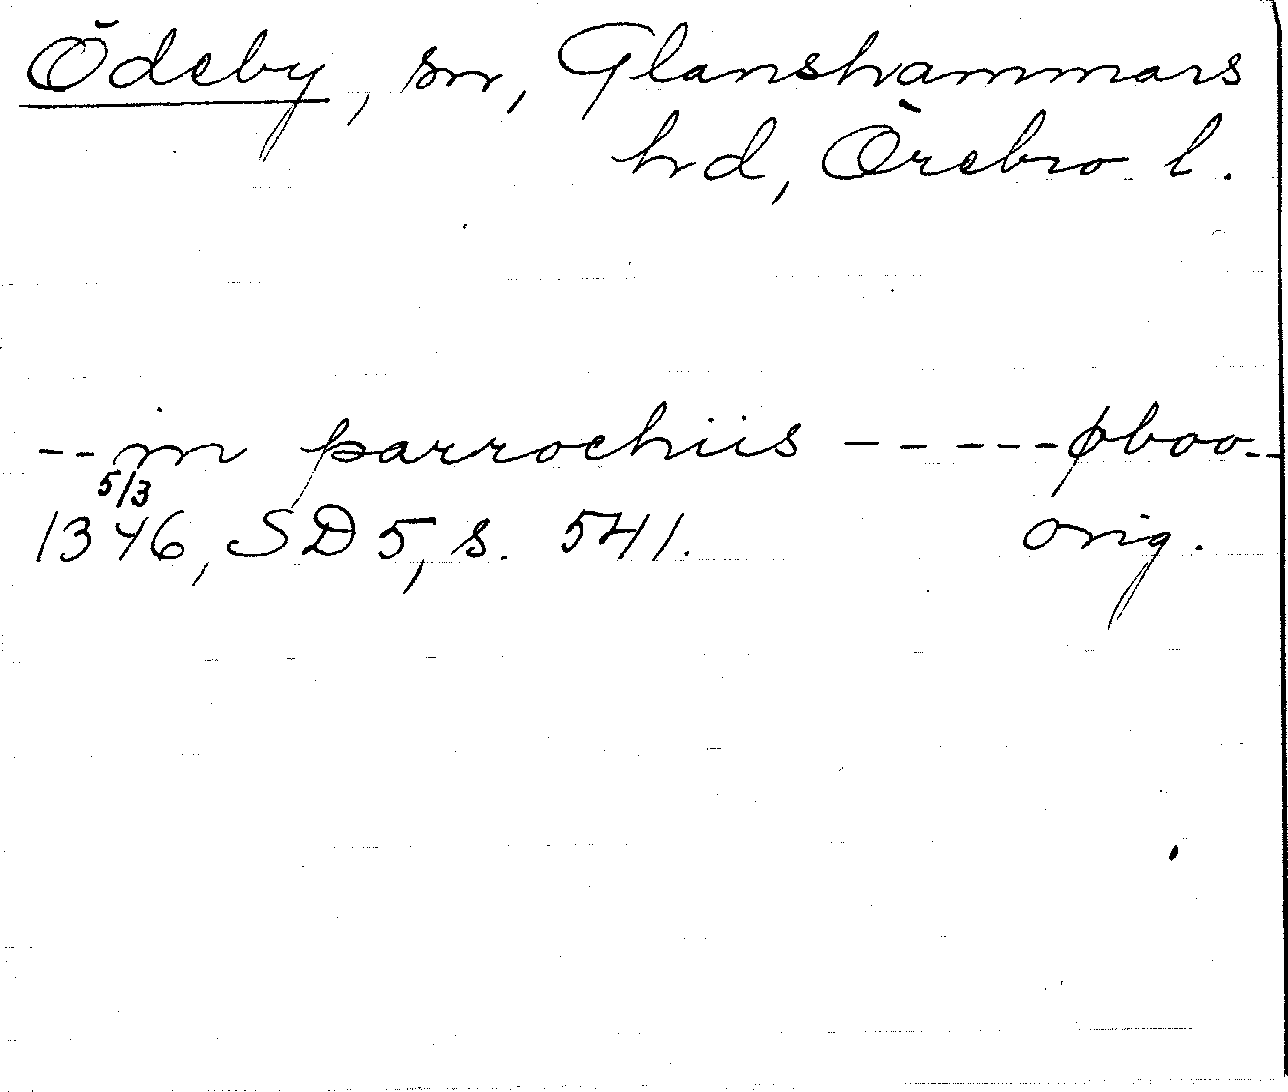 Ödeby, sn, Glanshammars
hd, Örebro l.
-- in parrochiis ----- øboo --
5/3
1346, SD 5, s. 541. orig.